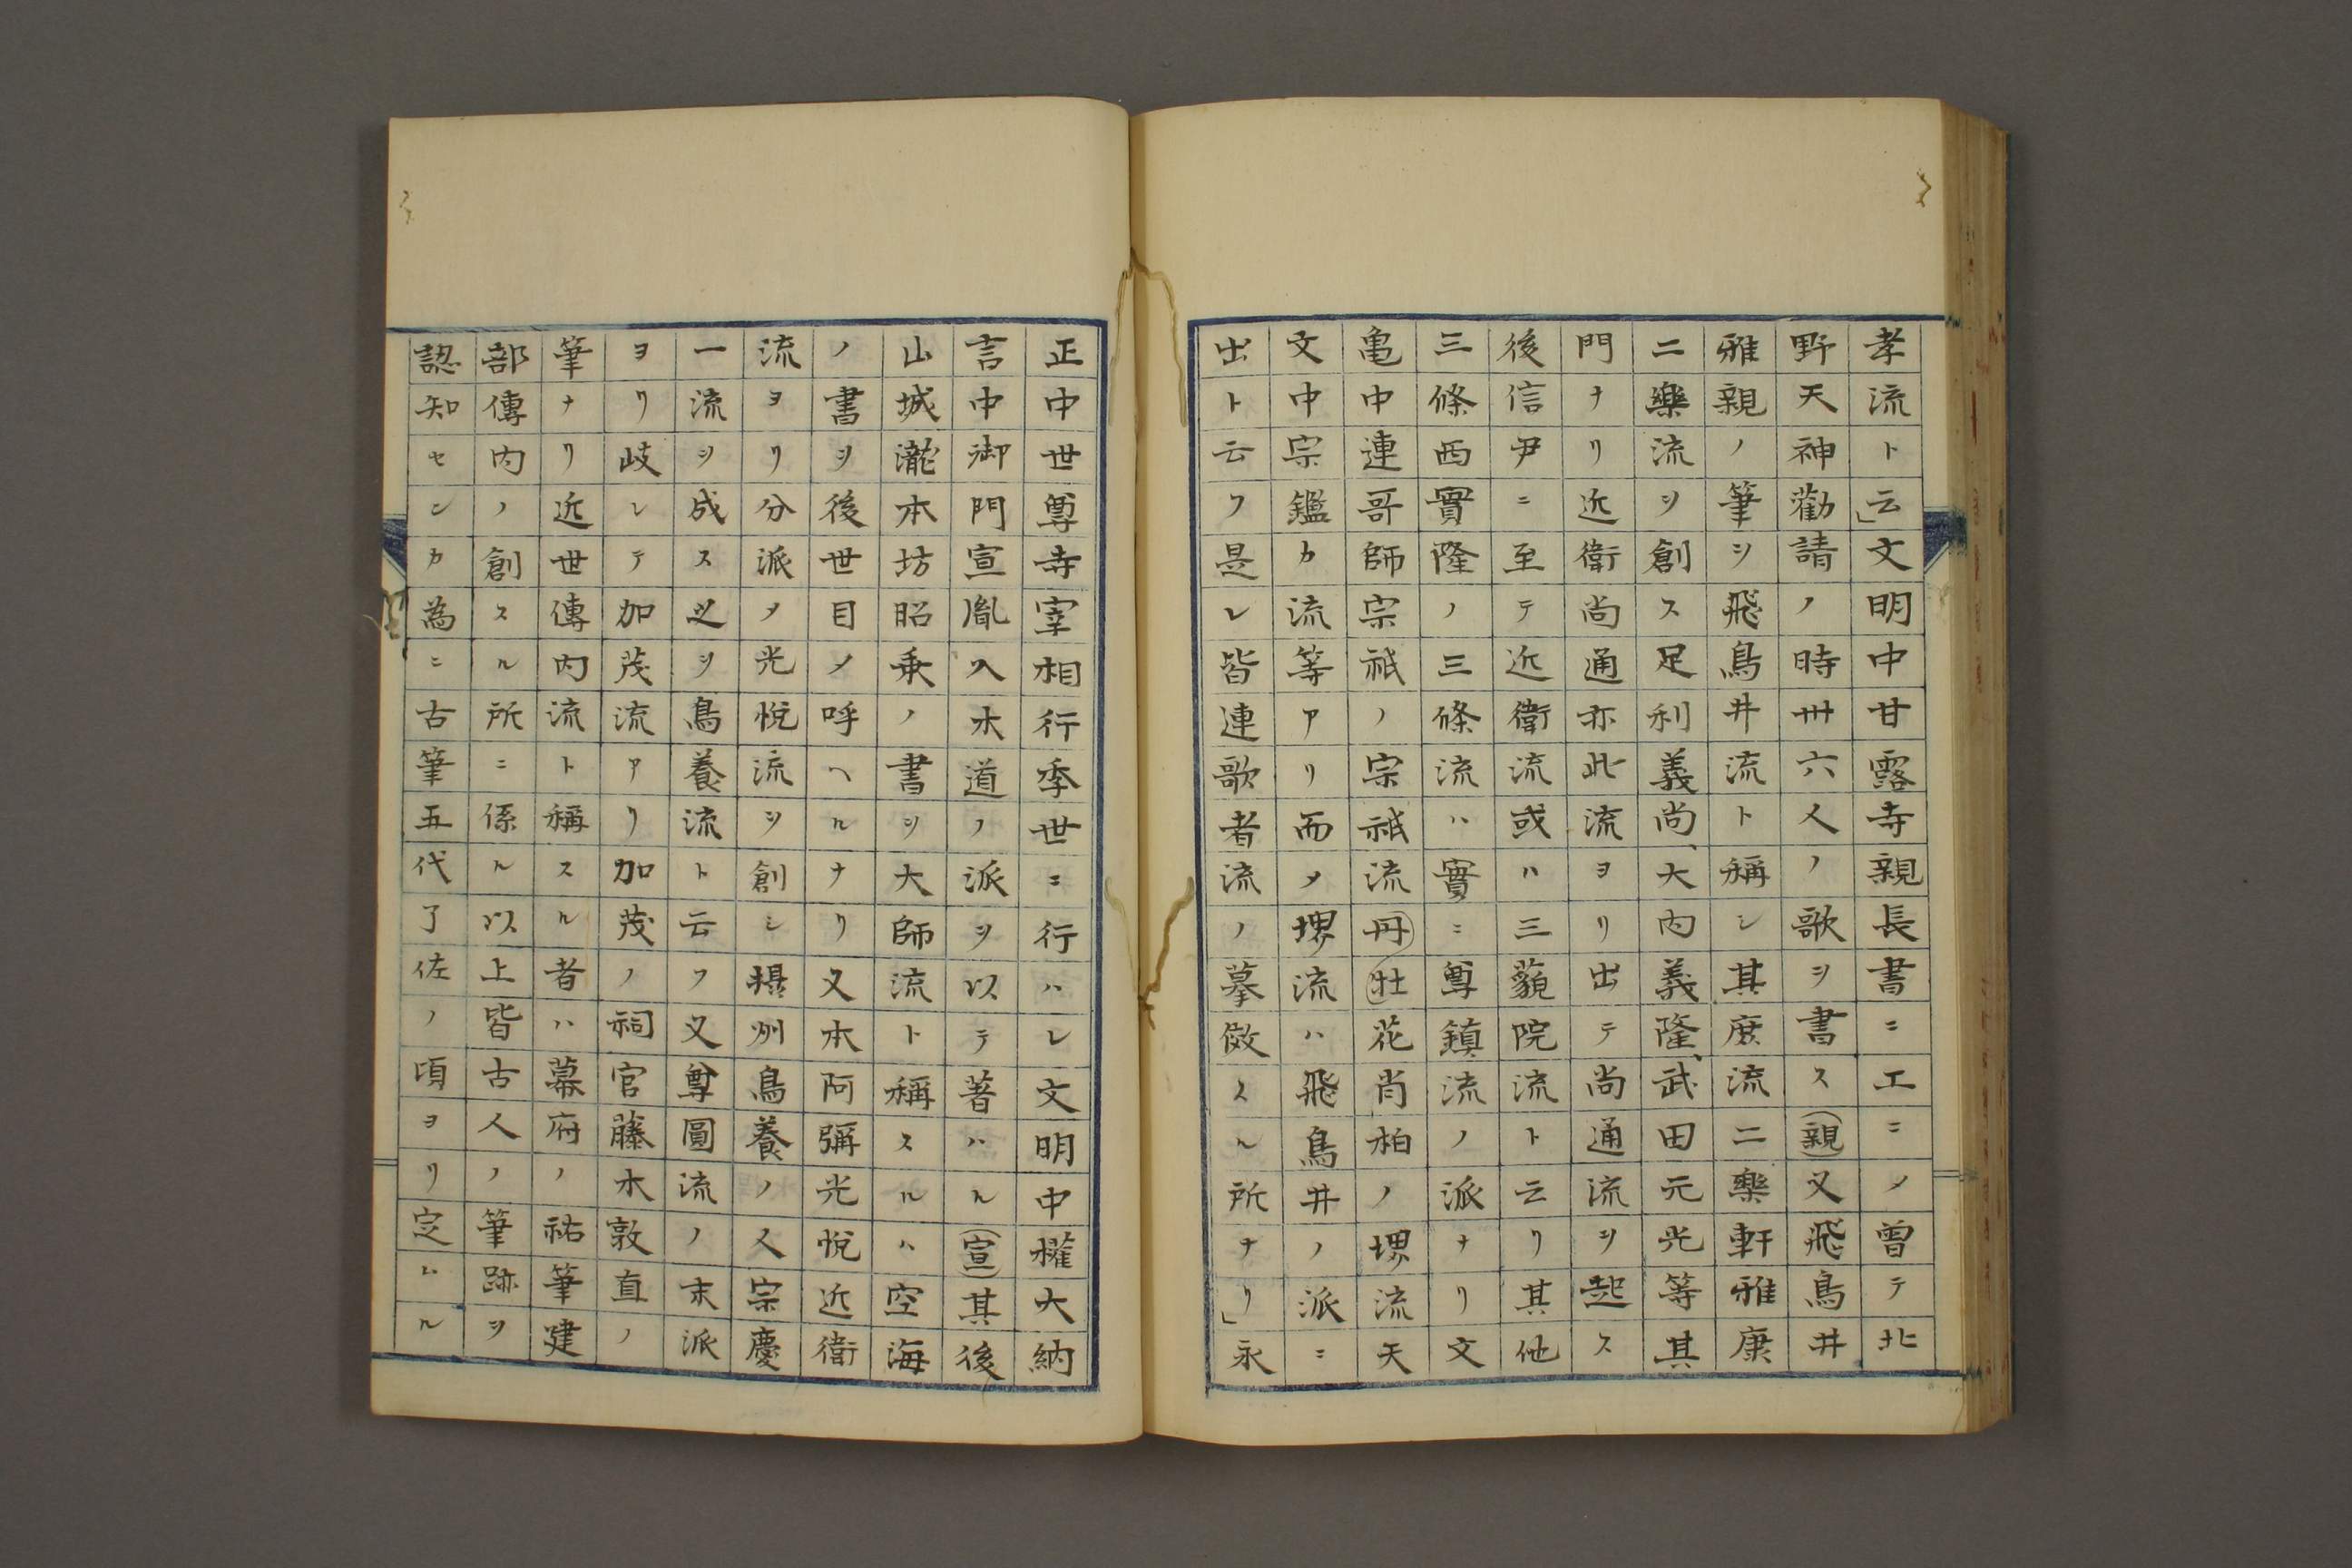 孝流ト云」文明中甘露寺親長書ニエニノ曽テ北
野天神勸請ノ時卅六人ノ歌ヲ書ス(親)又飛鳥井
雅親ノ筆ヲ飛鳥井流ト稱シ其庶流二樂軒雅康
二樂流ヲ創ス足利義尚、大内義隆、武田元光等其
門ナリ近衛尚通亦此流ヨリ出テ尚通流ヲ起ス
後信尹ニ至テ近衛流或ハ三藐院流ト云リ其他
三條西實隆ノ三條流ハ實ニ尊鎮流ノ派ナリ文
亀中連哥師宗祇ノ宗祇流(丹)(牡)花肖柏ノ堺流天
文中宗鑑カ流等アリ而メ堺流ハ飛鳥井ノ派ニ
出ト云フ是レ皆連歌者流ノ摹倣スル所ナリ」永
正中世尊寺宰相行季世ニ行ハレ文明中權大納
言中御門宣胤入木道ノ派ヲ以テ著ハル(宣)其後
山城瀧本坊昭乗ノ書ヲ大師流ト稱スルハ空海
ノ書ヲ後世目メ呼ヘルナリ又本阿彌光悦近衛
流ヨリ分派メ光悦流ヲ創シ摂州鳥養ノ人宗慶
一流ヲ成ス之ヲ鳥養流ト云フ又尊圓流ノ末派
ヨリ岐レテ加茂流アリ加茂ノ祠官藤木敦直ノ
筆ナリ近世傳内流ト稱スル者ハ幕府ノ祐筆建
部傳内ノ創スル所ニ係ル以上皆古人ノ筆跡ヲ
認知センカ為ニ古筆五代了佐ノ頃ヨリ定ムル